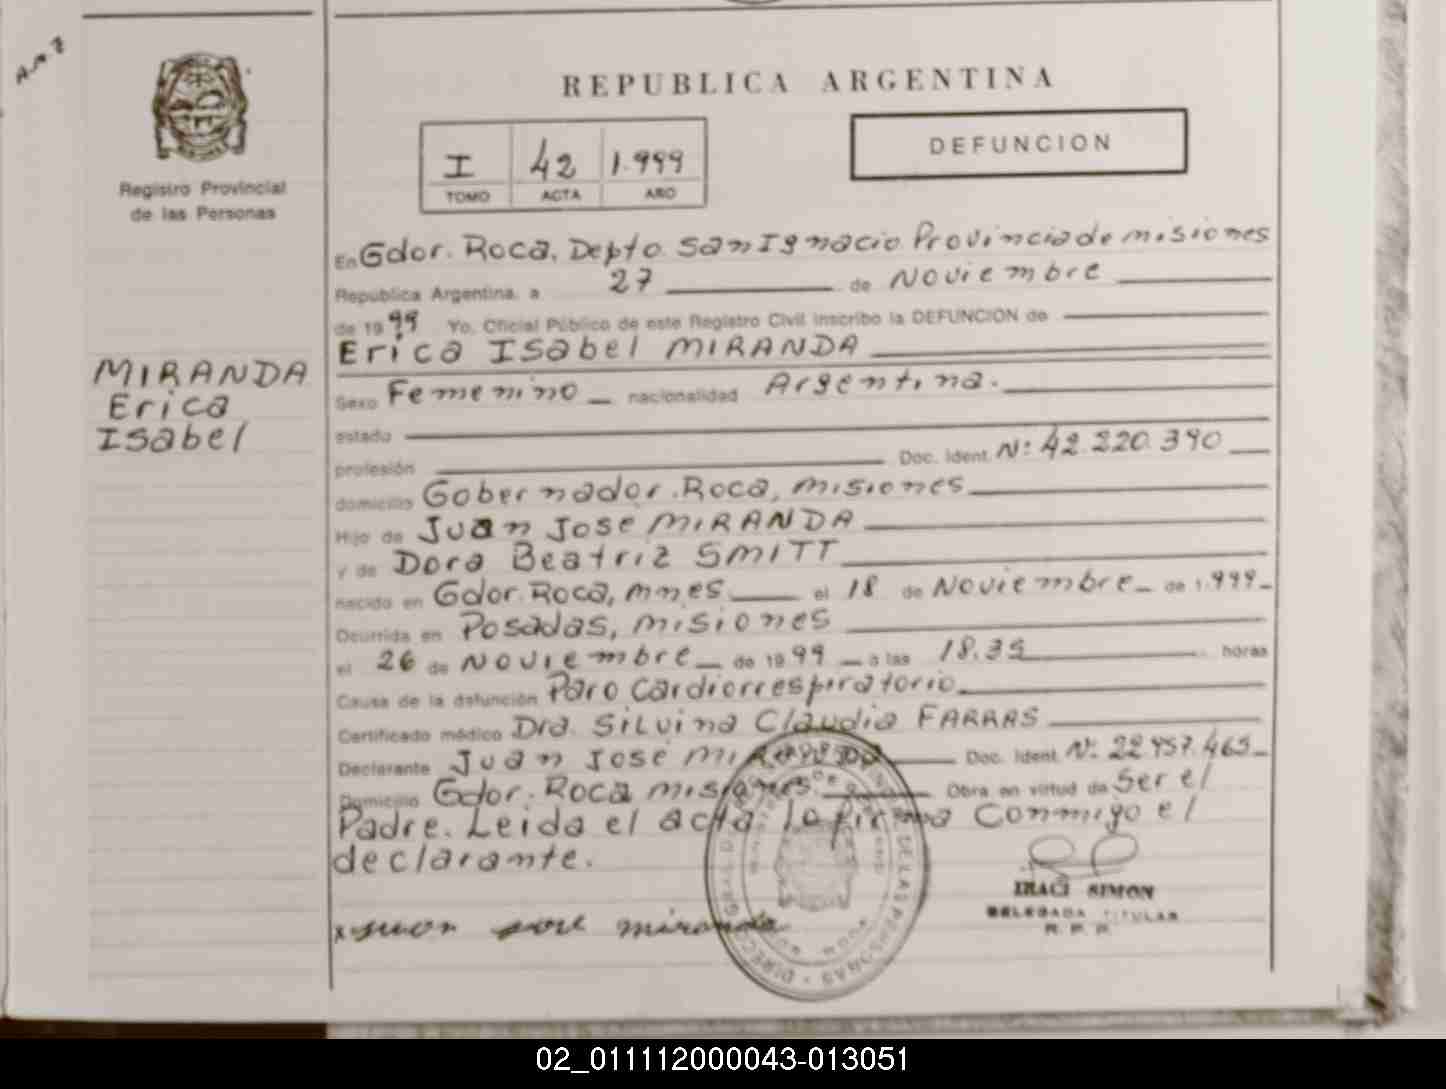 A.M.7
Registro Provincial
de las Personas
MIRANDA
Erica
Isabel
REPUBLICA ARGENTINA
I 42 1.999
TOMO ACTA AÑO
DEFUNCION
En Gdor. Roca, Depto. San Ignacio Provincia de Misiones
República Argentina, a 27 de Noviembre
de 1999 Yo, Oficial Público de este Registro Civil inscribo la DEFUNCION de
Erica Isabel MIRANDA
Sexo Femenino nacionalidad Argentina.
estado
profesión Doc. Ident. N: 42.220.390
domicilio Gobernador Roca, Misiones
Hijo de Juan José MIRANDA
y de Dora Beatriz SMITT
nacido en Gdor. Roca, Mnes el 18 de Noviembre de 1.999
Ocurrida en Posadas, Misiones
el 26 de Noviembre de 1999 a las 18.35 horas
Causa de la defunción Paro Cardiorrespiratorio
Certificado médico Dra. Silvina Claudia FARRAS
Declarante Juan José MIRANDA Doc. Ident. N: 22.957.465
Domicilio Gdor. Roca Misiones Obra en virtud de Ser el
Padre. Leida el acta la firma Conmigo el
declarante.
x juan jose miranda
IRACI SIMON
DELEGADA TITULAR
R. P. P.
DE LAS PERSONAS
02_011112000043-013051